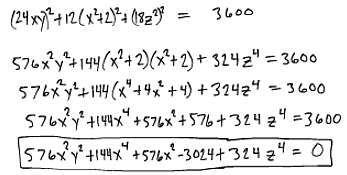 (24xy)²+12(x²+2)²+(18z²)² = 3600
576x²y²+144(x²+2)(x²+2)+324z⁴=3600
576x²y²+144(x⁴+4x²+4)+324z⁴=3600
576x²y²+144x⁴+576x²+576+324z⁴=3600
576x²y²+144x⁴+576x²-3024+324z⁴=0